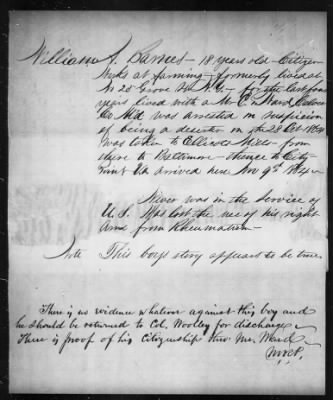 William J. Barnes - 18 years old - Citizen
Works at farming - formerly lived at
No 25 Grove St N.Y. - for the last four
years lived with a Mr. E. Ward
Co Md was arrested on suspicion
of being a deserter on the 28 Oct 1864
was taken to Ellicotts Mills - from
there to Baltimore - thence to City
Point Va arrived here Nov 9th 1864 -
Never was in the Service of
U.S. Has lost the use of his right
arm from Rheumatism -
Note This boys story appears to be true.
There is no evidence whatever against this boy and
he should be returned to Col. Woolley for discharge
There is proof of his citizenship thro Mr. Ward